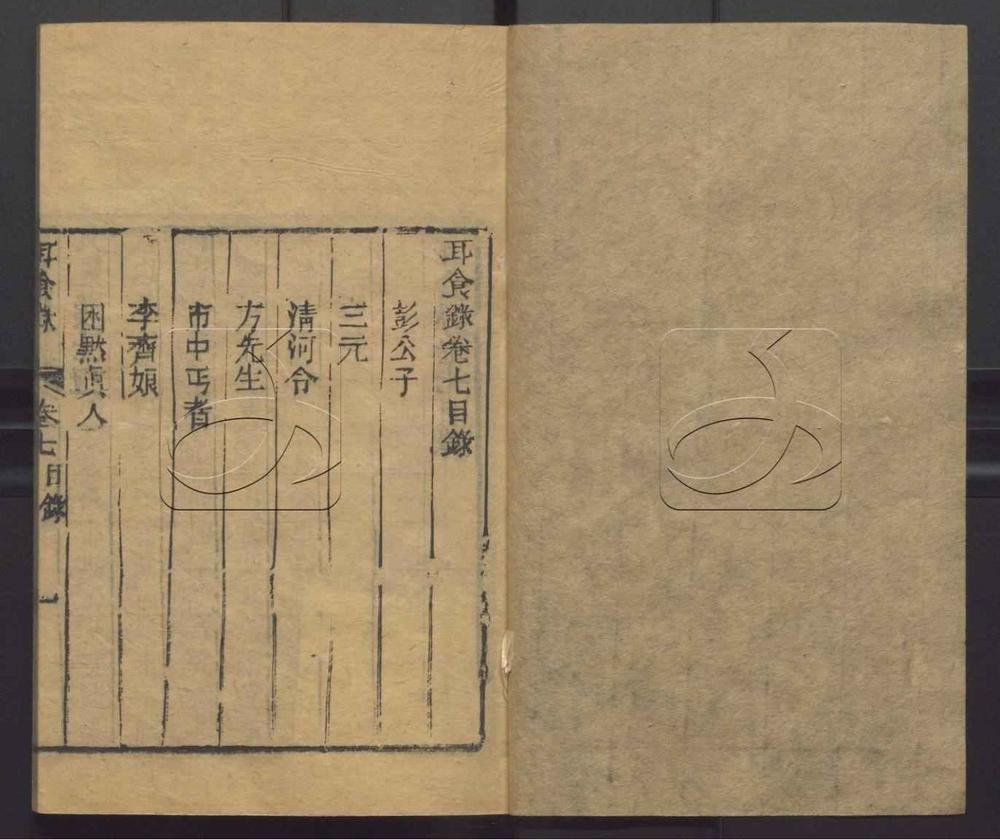 耳食錄卷七目錄
彭公子
三元
淸河令
方先生
市中丐者
李齊娘
困默眞人
耳食錄 卷七目錄 一